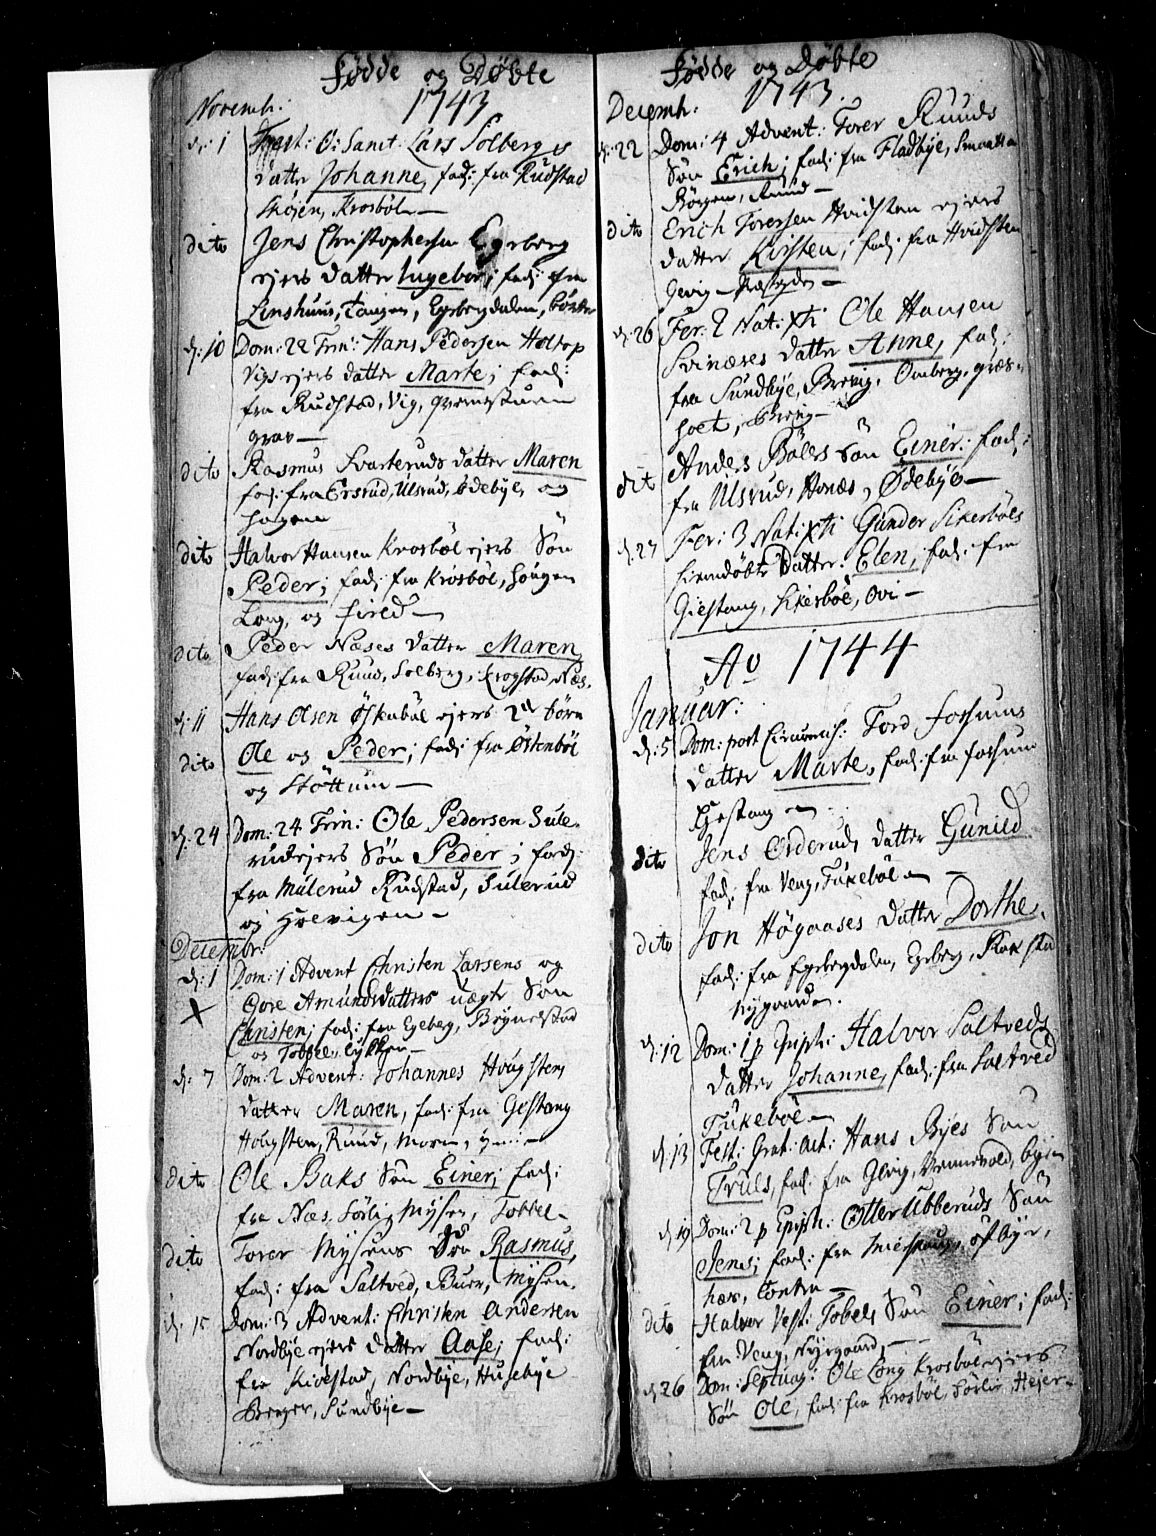 Fødde og Døbte
1743
Novemb:
d: 1 Fest: O: Sanct: Lars Solbergs
datter Johanne, fad: fra Rudstad
Skøjen, Krosbøl
dito Jens Christophersen Egeberg
ejers datter Ingebor; fad: fra
Linshuus, Tangen, Egebergdalen,
d: 10 Dom: 22 Trin: Hans Pedersen Holtop
Vigs ejers datter Marte; fad:
fra Rudstad, Vig,
grav
dito Rasmus Svarteruds datter Maren
fad: fra Ersrud, Ulsrud, Ødebye, og
hagen
dito Halvor Hansen Krosbøl ejers Søn
Peder; fad: fra Krosbøl, Haugen
Long, og
dito Peder Næses datter Maren
fad: fra Ruud, Solberg, Krogstad, Næs.
d: 11 Hans Olsen Østenbøl ejers 2de børn
dito Ole og Peder; fad: fra Østenbøl
og Støttum
d: 24 Dom: 24 Trin: Ole Pedersen Sule
rud ejers Søn Peder; fad:
fra Mulerud Rudstad, Sulerud
og Holvigen
Decembr:
d: 1 Dom: 1 Advent Christen Larsens og
X Gore Amundsdatters uægte Søn
Christen; fad: fra Egeberg, Brynelstad
og Tobbelykken
d: 7 Dom: 2 Advent: Johannes Høugsten
datter Maren, fad: fra Gestang
Høugsten, Ruud, Moren,
dito Ole Baks Søn Einer; fad:
fra Næs, Sørli, Mysen, Tobbel
dito Torer Mysens Søn Rasmus,
fad: fra Saltved, Buer, Mysen.
d: 15 Dom: 3 Advent: Christen Andersen
Nordbye ejers datter Aase; fad:
fra Kirestad, Nordbye, Husebye
Berger, Sundbye
Fødde og Døbte
1743.
Decemb:
d: 22 Dom: 4 Advent: Torer Ruuds
Søn Erich; fad: fra Fladbye,
Børgen, Ruud
dito Erich Torersen Hvidsten ejers
datter Kirsten; fad: fra Hvidsten
Gevig
d: 26 Fer: 2 Nat: Xti Ole Hansen
Svinæses datter Anne, fad:
fra Sundbye, Brevig, Omberg, græs-
hoet, Brevig
dit Anders Bølers Søn Einer: fad:
fra Ulsrud, Honæs, Ødebye
d: 27 Fer: 3 Nat: Xti Gunder Sikerbøls
hiemdøbte Datter: Elen, fad: fra
Giestang, Sikerbøl, Ovi
Ao 1744
Januar:
d: 5 Dom: post Circumcis: Tord Fossums
datter Marte, fad: fra Fossum
Gestang
dito Jens Orderuds datter Gunild
fad: fra Veng, Tukebøl
dito Jon Høgaases datter Dorthe,
fad: fra Egebergdalen, Egeberg, Kokstad
Nygaard.
d: 12 Dom: 1 p Epiph: Halvor Saltveds
datter Johanne, fad: fra Saltved
Tukebøl
d: 13 Fest: Grat: Act: Hans Byes Søn
Truls, fad: fra Glevig, Vennevold,
d: 19 Dom: 2 p Epiph: Otter Ubberuds Søn
Jens; fad: fra
hær,
dito Halvor Vest: Tobels Søn Einer; fad:
fra Veng, Nygaard,
d: 26 Dom: Septuag: Ole Long Krosbøl ejers
Søn Ole, fad: fra Krosbøl, Sørlie,